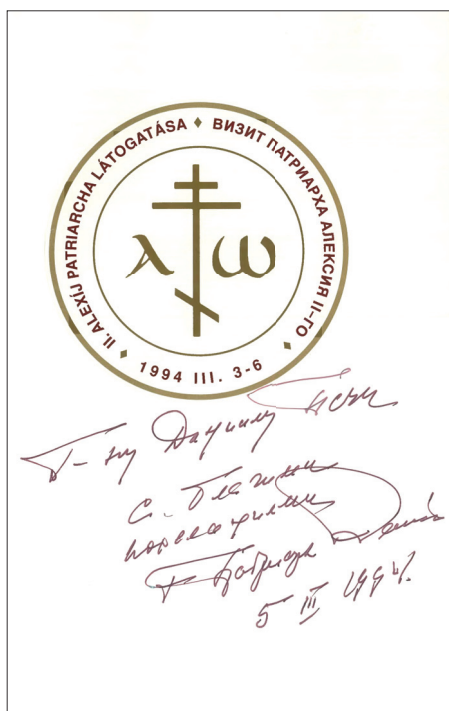 II. ALEXIJ PATRIARCHA LÁTOGATÁSA ♦ ВИЗИТ ПАТРИАРХА АЛЕКСИЯ II-ГО ♦
1994 III. 3-6 ♦
λ ω
Г-ну Даниилу
с благими
пожеланиями
Патриарх
5 III 1994.